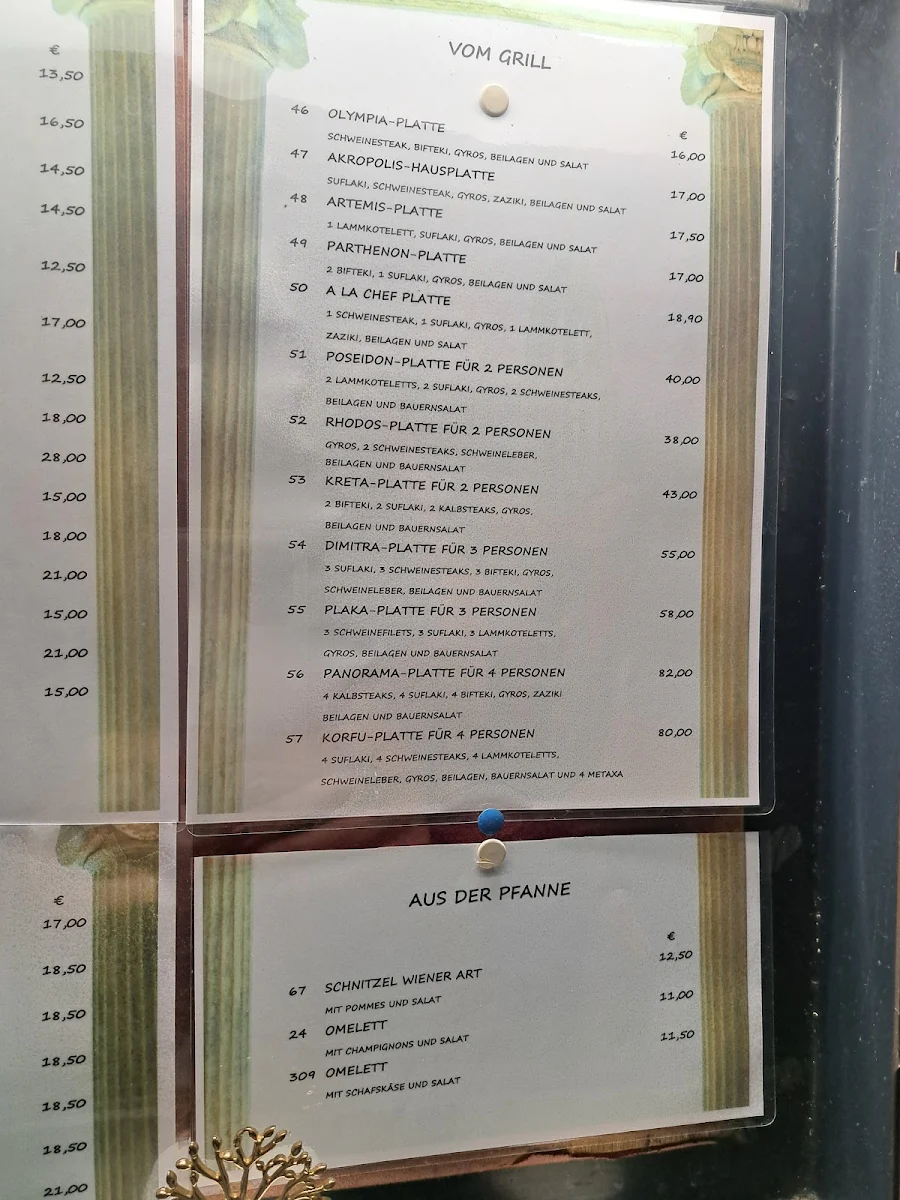 €
13,50
16,50
14,50
14,50
12,50
17,00
12,50
18,00
28,00
15,00
18,00
21,00
15,00
21,00
15,00
VOM GRILL
€
46 OLYMPIA-PLATTE 16,00
SCHWEINESTEAK, BIFTEKI, GYROS, BEILAGEN UND SALAT
47 AKROPOLIS-HAUSPLATTE 17,00
SUFLAKI, SCHWEINESTEAK, GYROS, ZAZIKI, BEILAGEN UND SALAT
48 ARTEMIS-PLATTE 17,50
1 LAMMKOTELETT, SUFLAKI, GYROS, BEILAGEN UND SALAT
49 PARTHENON-PLATTE 17,00
2 BIFTEKI, 1 SUFLAKI, GYROS, BEILAGEN UND SALAT
50 A LA CHEF PLATTE 18,90
1 SCHWEINESTEAK, 1 SUFLAKI, GYROS, 1 LAMMKOTELETT,
ZAZIKI, BEILAGEN UND SALAT
51 POSEIDON-PLATTE FÜR 2 PERSONEN 40,00
2 LAMMKOTELETTS, 2 SUFLAKI, GYROS, 2 SCHWEINESTEAKS,
BEILAGEN UND BAUERNSALAT
52 RHODOS-PLATTE FÜR 2 PERSONEN 38,00
GYROS, 2 SCHWEINESTEAKS, SCHWEINELEBER,
BEILAGEN UND BAUERNSALAT
53 KRETA-PLATTE FÜR 2 PERSONEN 43,00
2 BIFTEKI, 2 SUFLAKI, 2 KALBSTEAKS, GYROS,
BEILAGEN UND BAUERNSALAT
54 DIMITRA-PLATTE FÜR 3 PERSONEN 55,00
3 SUFLAKI, 3 SCHWEINESTEAKS, 3 BIFTEKI, GYROS,
SCHWEINELEBER, BEILAGEN UND BAUERNSALAT
55 PLAKA-PLATTE FÜR 3 PERSONEN 58,00
3 SCHWEINEFILETS, 3 SUFLAKI, 3 LAMMKOTELETTS,
GYROS, BEILAGEN UND BAUERNSALAT
56 PANORAMA-PLATTE FÜR 4 PERSONEN 82,00
4 KALBSTEAKS, 4 SUFLAKI, 4 BIFTEKI, GYROS, ZAZIKI
BEILAGEN UND BAUERNSALAT
57 KORFU-PLATTE FÜR 4 PERSONEN 80,00
4 SUFLAKI, 4 SCHWEINESTEAKS, 4 LAMMKOTELETTS,
SCHWEINELEBER, GYROS, BEILAGEN, BAUERNSALAT UND 4 METAXA
€
17,00
18,50
18,50
18,50
18,50
18,50
21,00
AUS DER PFANNE
€
67 SCHNITZEL WIENER ART 12,50
MIT POMMES UND SALAT
24 OMELETT 11,00
MIT CHAMPIGNONS UND SALAT
309 OMELETT 11,50
MIT SCHAFSKÄSE UND SALAT